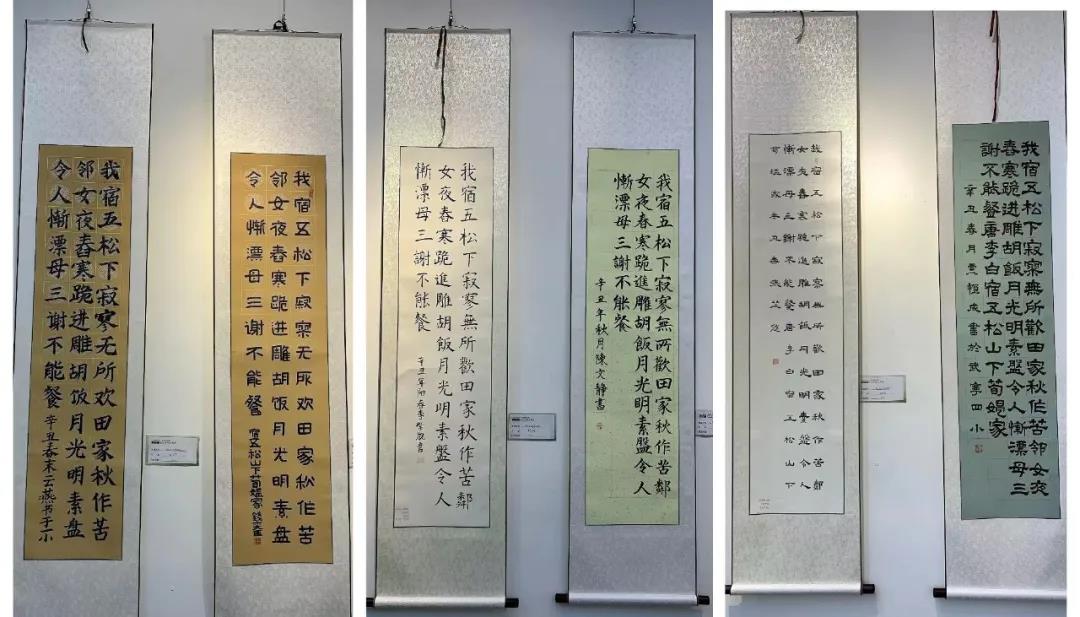 我宿五松下寂寥无所欢田家秋作苦
邻女夜舂寒跪进雕胡饭月光明素盘
令人惭漂母三谢不能餐
辛丑春末云燕书于一小
我宿五松下寂寥无所欢田家秋作苦
邻女夜舂寒跪进雕胡饭月光明素盘
令人惭漂母三谢不能餐
宿五松山下荀媪家
我宿五松下寂寥無所歡田家秋作苦鄰
女夜舂寒跪進雕胡飯月光明素盤令人
慚漂母三謝不能餐
我宿五松下寂寥無所歡田家秋作苦鄰
女夜舂寒跪進雕胡飯月光明素盤令人
慚漂母三謝不能餐
辛丑年秋月陳文靜書
我宿五松下寂寥無所歡田家秋作苦鄰
女夜舂寒跪進雕胡飯月光明素盤令人
慚漂母三謝不能餐唐李白宿五松山下
荀媪家辛丑春
我宿五松下寂寥無所歡田家秋作苦鄰女夜
舂寒跪进雕胡飯月光明素盤令人慚漂母三
謝不能餐唐李白宿五松山下荀媪家
辛丑春月書於武寧四小